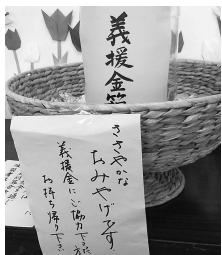 義援金箱
ささやかな
おみやげです
義援金にご協力下さった方
お持ち帰り下さい